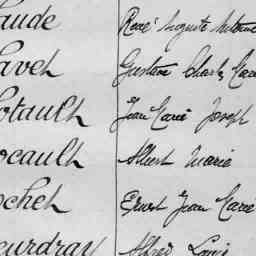 aude René Auguste
avet Gustave Charles
otault Jean Marie Joseph
ocault Albert Marie
ochet Ernest Jean Marie
eurdray Alfred Louis